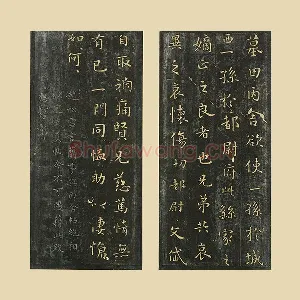 墓田丙舍欲使一孫於城
西一孫於都尉府此繇家之
嫡正之良者也兄弟共哀
異之哀懷傷切都尉文岱
自取禍痛賢兄慈篤情無
有已一門同恤助以悽愴
如何〻